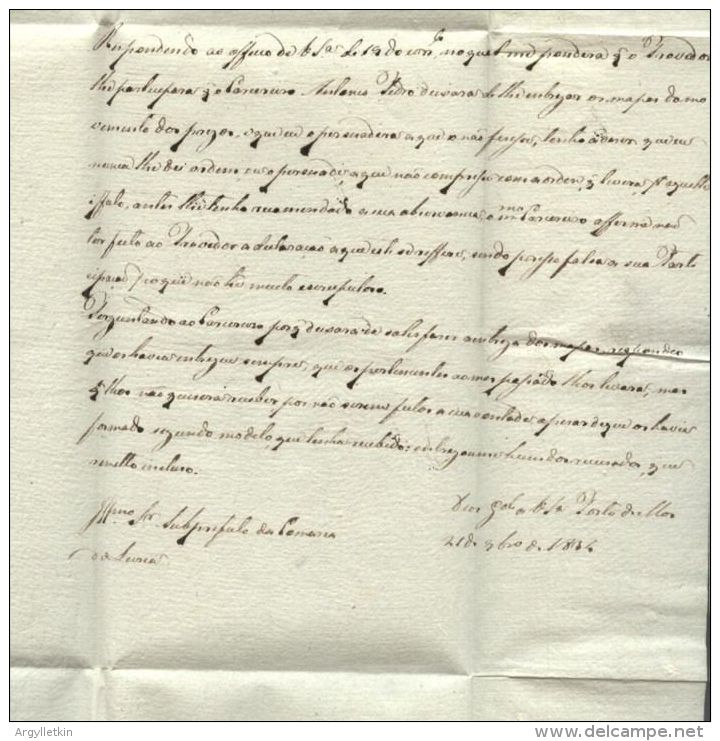 Respondendo ao officio de V Sª de 19 do corr.e no qual me pondera q o Provedor
lhe participara q o Carcereiro Antonio Pedro deixara de lhe entregar os mapas do mo
vimento dos prezos, e que eu o persuadera a que o não fizesse, tenho a dizer que eu
nunca lhe dei ordem ou o persuadi, a que não comprisse com a ordem, q tivera,
antes lhe tenho recomendado a sua observancia, o mmo Carcereiro afirma não
ter feito ao Provedor a declaração a que elle se reffere, sendo por isso falsa a sua Parti
cipação, no que não tem muito escrupulo.
Perguntando ao Carcereiro porq deixara de satisfazer a entrega dos mapas, respondeo
que os havia entregue sempre, que os pertencentes ao mes passado lhos levara, mas
q lhos não quisera receber por não serem feitos a sua vontade apezar de que os havia
formado segundo modelo que tinha recebido: entregou-me hum dos recusados, que
remetto incluso.
Deos g.e a V. Sª Porto de Mós
21 de 9bro de 1834
Illmo Sr Subprefeito da Comarca
de Leiria
Argylletkin
www.delcampe.net